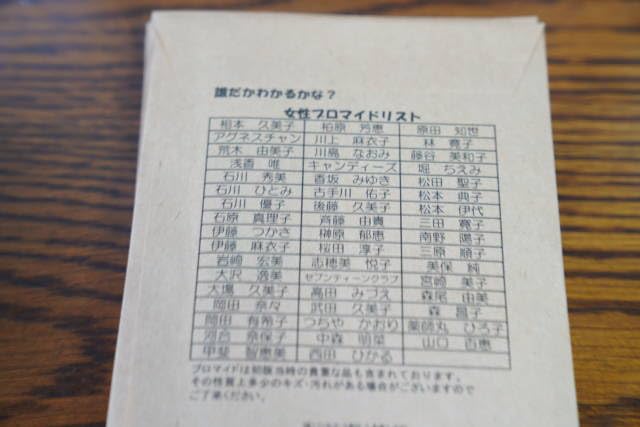 誰だかわかるかな？
女性ブロマイドリスト
相本 久美子 柏原 芳恵 原田 知世
アグネスチャン 川上 麻衣子 林 寛子
荒木 由美子 川島 なおみ 藤谷 美和子
浅香 唯 キャンディーズ 堀 ちえみ
石川 秀美 香坂 みゆき 松田 聖子
石川 ひとみ 古手川 佑子 松本 典子
石川 優子 後藤 久美子 松本 伊代
石原 真理子 斉藤 由貴 三田 寛子
伊藤 つかさ 榊原 郁恵 南野 陽子
伊藤 麻衣子 桜田 淳子 三原 順子
岩崎 宏美 志穂美 悦子 美保 純
大沢 逸美 セブンティーンクラブ 宮崎 美子
大場 久美子 高田 みづえ 森尾 由美
岡田 奈々 武田 久美子 森 昌子
岡田 有希子 つちや かおり 薬師丸 ひろ子
河合 奈保子 中森 明菜 山口 百恵
甲斐 智恵美 西田 ひかる
ブロマイドは初版当時の貴重な品も含まれております。
その性質上多少のキズ・汚れがある場合がございますので
ご了承ください。